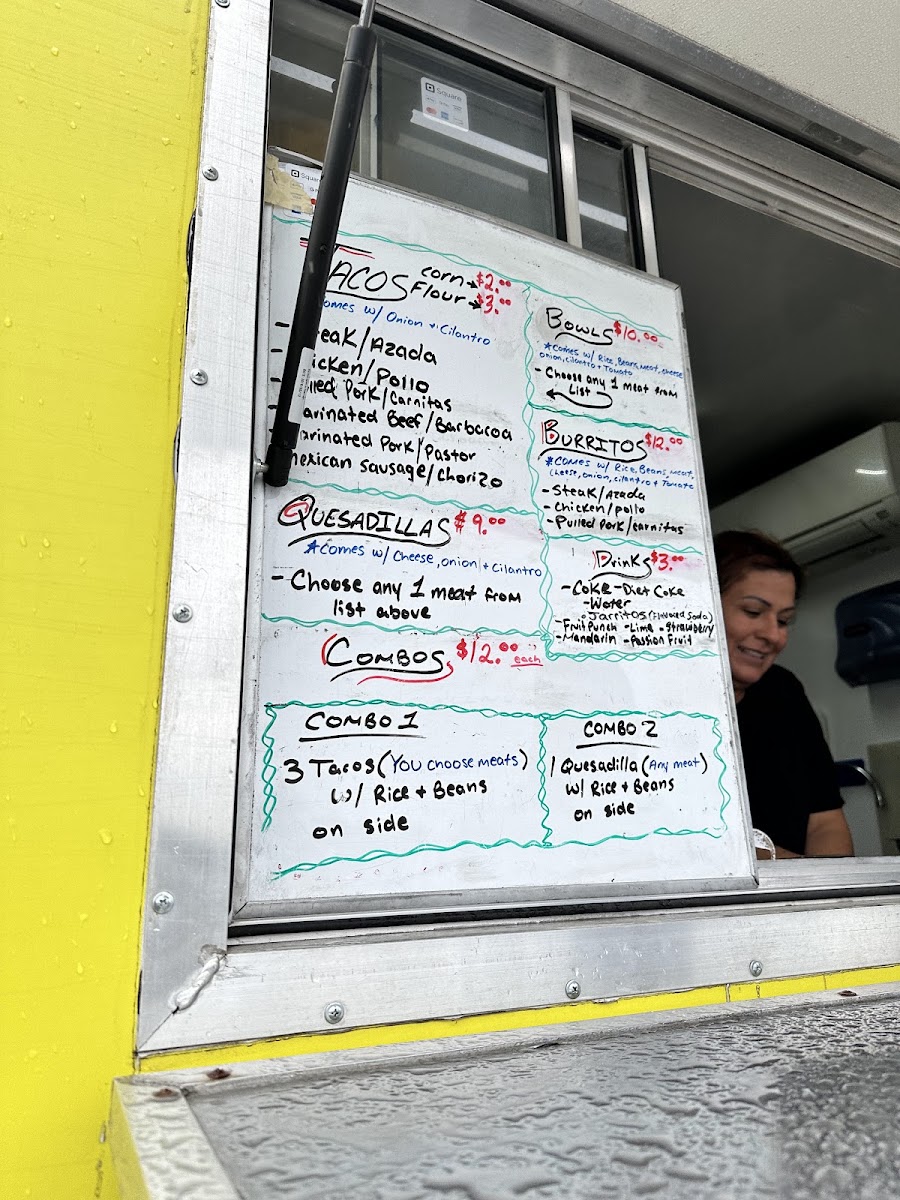 Square
Squar
TACOS corn→$2.00
Flour→$3.00
omes w/ Onion + Cilantro
eak/Azada
icken/Pollo
lled Pork/Carnitas
arinated Beef/Barbacoa
arinated Pork/Pastor
merican Sausage/Chorizo
QUESADILLAS $9.00
*Comes w/ Cheese, onion + Cilantro
- Choose any 1 meat from
list above
BOWLS $10.00
*Comes w/ Rice, Beans, meat, cheese
onion, cilantro + Tomato
- Choose any 1 meat from
List
BURRITOS $12.00
*COMES w/ Rice, Beans, meat
Cheese, onion, cilantro + Tomato
- Steak/Azada
- Chicken/pollo
- Pulled Pork/carnitas
Drinks $3.00
- Coke - Diet Coke
- Water
Jarritos (Flavored Soda)
- Fruit Punch - Lime - Strawberry
- Mandarin - Passion Fruit
COMBOS $12.00 each
COMBO 1
3 Tacos (You choose meats)
w/ Rice + Beans
on side
COMBO 2
1 Quesadilla (Any meat)
w/ Rice + Beans
on side